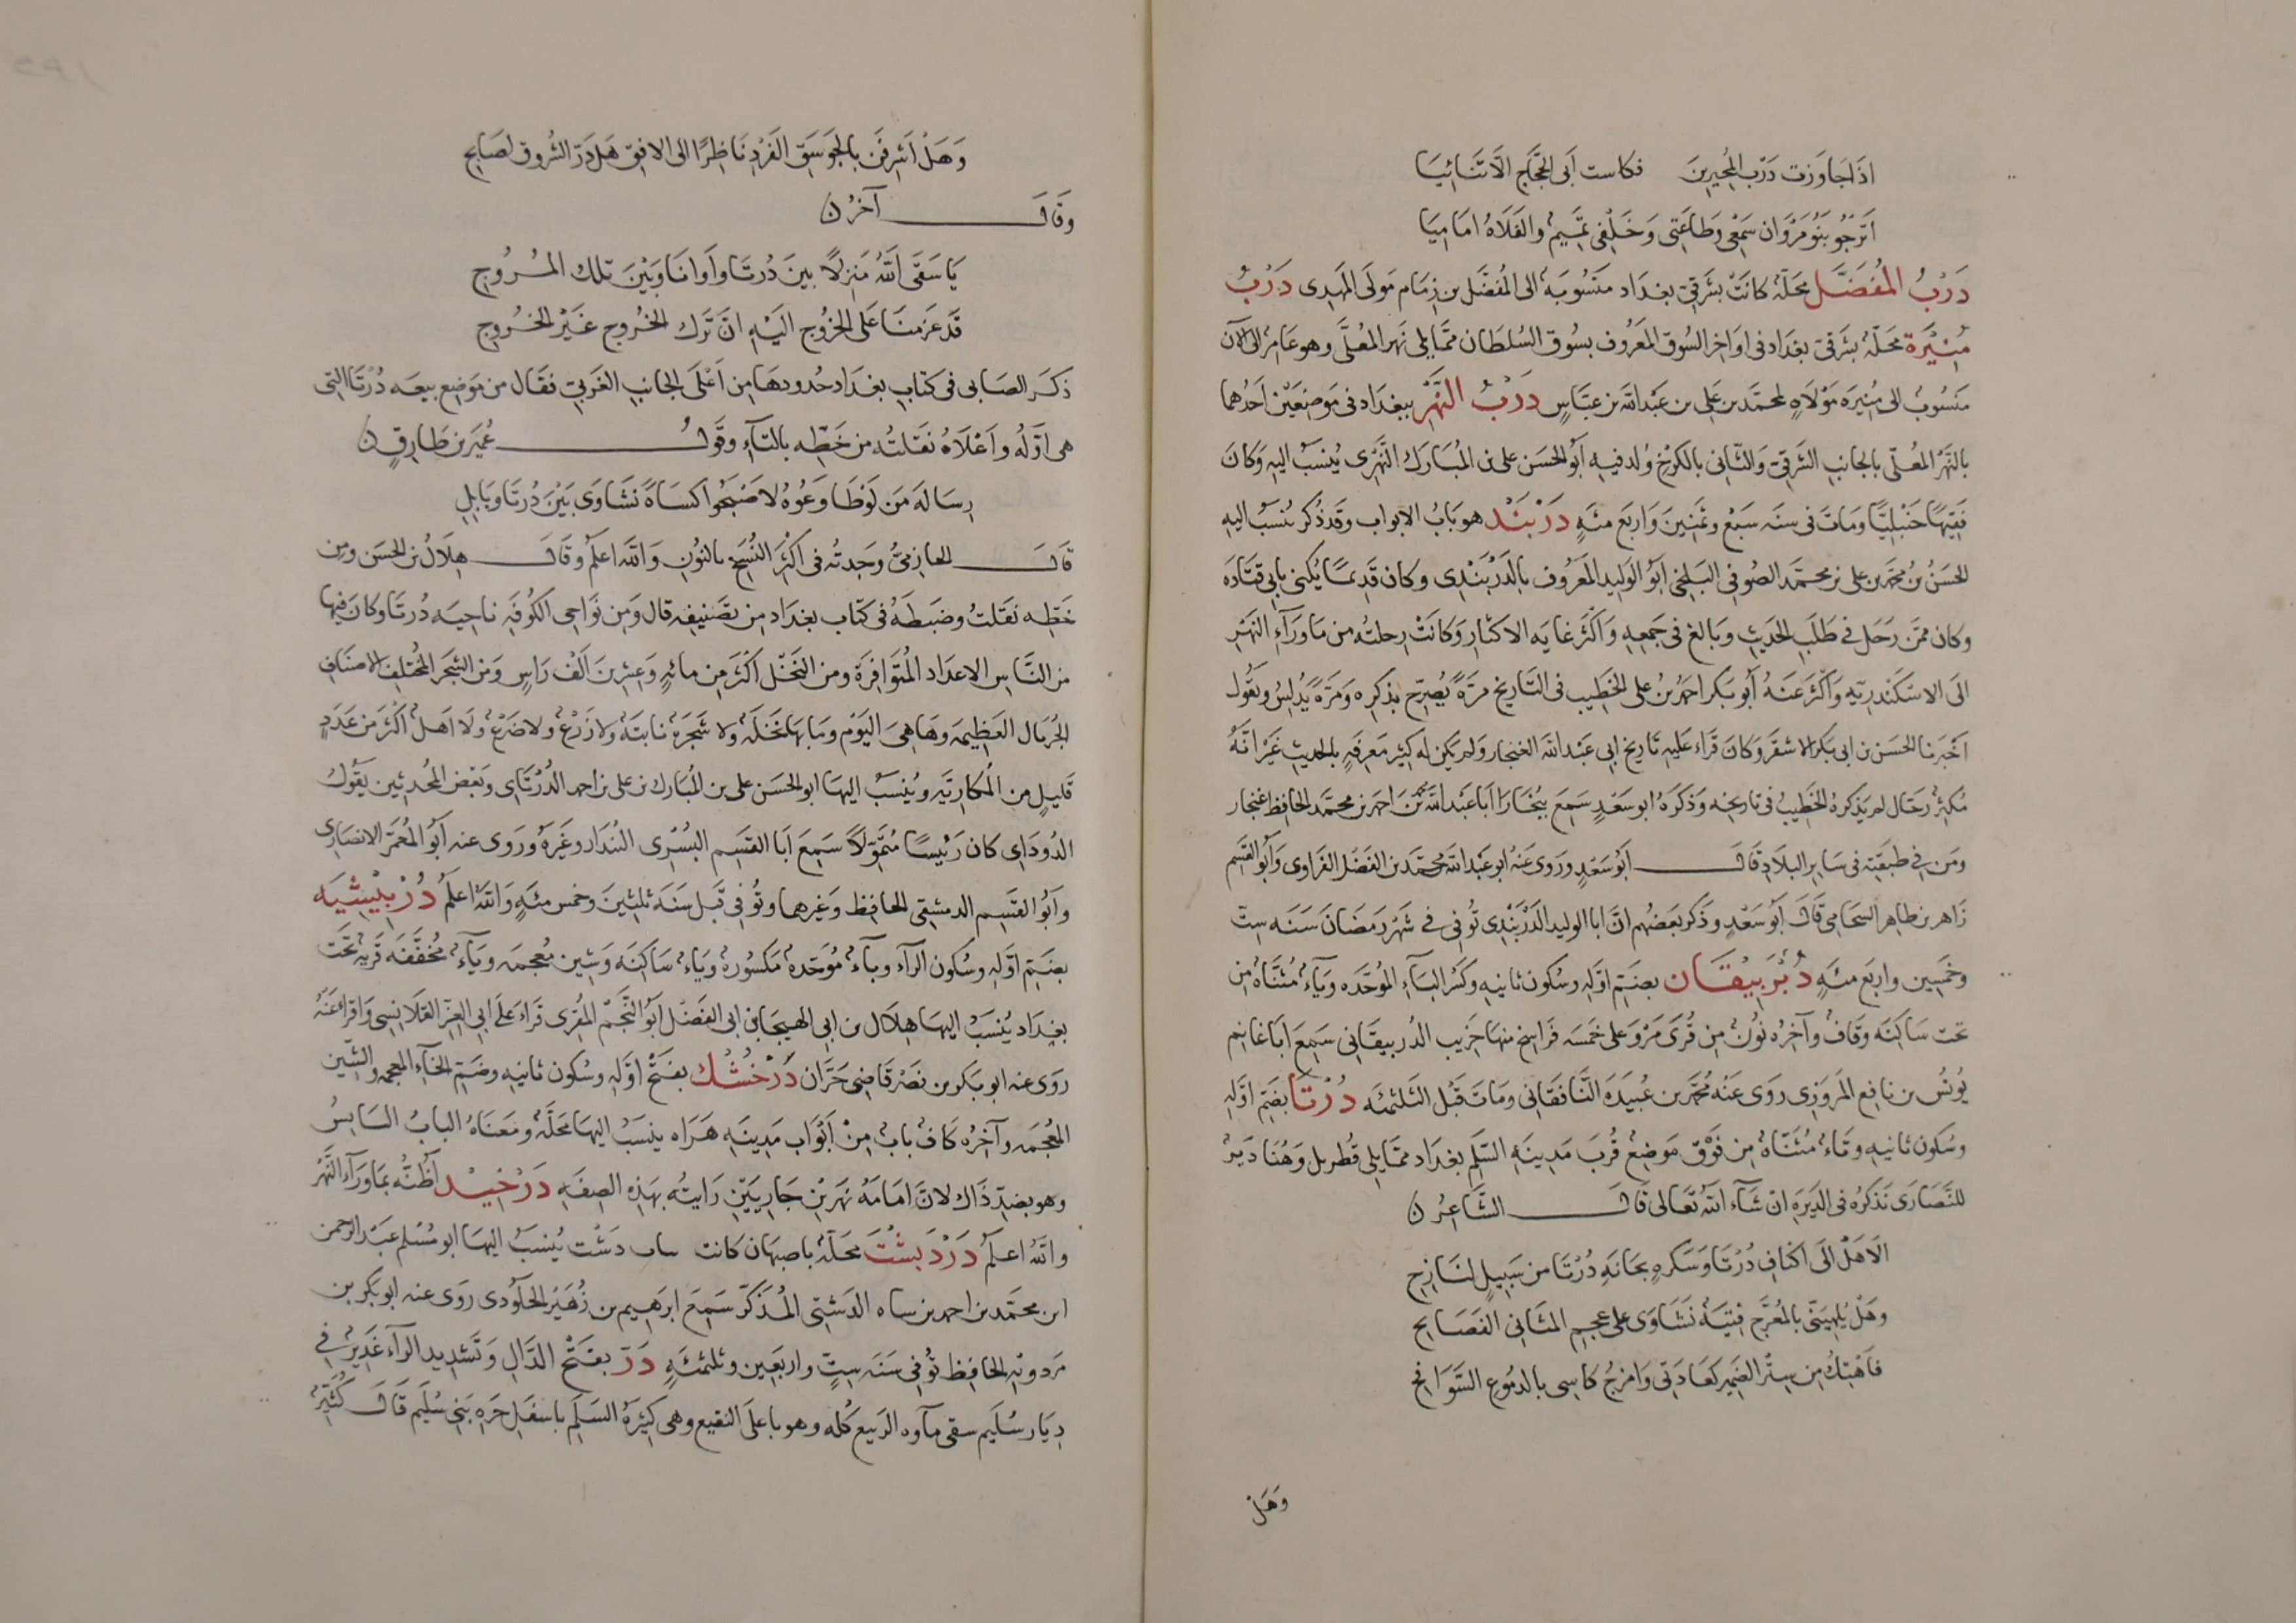 اذَا جَاوَزت دَرْبَ المُجيرينَ فكاست أبى الحَجَّاج الَّا تنَائيَا
اَترَجُو بَنُو مَرْوَان سَمْعِى وَطاعَتِى وَخَلْفِى تَميم وَالفَلَاةُ امَامِيَا
دَرْبُ المُفَضَّل محَلّة كانَتْ بشَرقىّ بغداد منَسُوبَة الى المُفضَّل بن زِمَام مَولَى المَهْدى دَرْبُ
مُنيْرَة محَلّةُ بشَرقى بغدَاد فى اوَاخِر السُوق المعَرُوف بسُوق السُلطَان ممَّا يلى نَهر المُعلَّى وهو عَامِر الى الآن
منَسُوبُ الى مُنِيرَة مَوْلَاةٍ لمحمّد بن عَلى بن عَبْد الله بن عبَّاسٍ دَرْبُ النَّهْرِ ببغدَاد فى موضِعَيْن اَحَدُهما
بالنَّهْر المُعلّى بالجانبِ الشَرقىّ وَالثّانى بالكَرْخ وُلد فيهِ ابو الحَسَن على بن المُبَارك النَّهْرِى يُنسَبُ اليهِ وَكانَ
فَقِيْهًا حَنْبَليّا وَماتَ فى سنَه سَبْع وثمنينَ وَاربَع مئهٍ دَرْبَنْد هو بَابُ الابواب وقد ذُكر يُنسَبُ اليهِ
الحَسَنُ بنُ محمّد بن على بن محَمّد الصُوفى البَلخى ابَوُ الوَليد المعَرُوف بالدَرْبَنْدِى وكان قَديمًا يُكنى بابى قتادَه
وكان ممّن رَحَل فى طَلَب الحَديثِ وبَالغ فى جَمعِهِ وَاكْثَرَ غايَه الاكثارِ وَكانَتْ رحلتُه من ماوَرَآءِ النهَر
الَى الاسْكَنْدريّهِ وَاكْثَرَ عَنهُ أبُو بَكر احمَدُ بنُ على الخَطِيب فى التَاريخ مَرَةً يُصرّح بذِكرِه وَمَرَةً يُدلِّسُ ويقُول
اَخْبَرنا الحسَن بن ابى بَكر الاشقَر وَكانَ قَراء عَليهِ تَاريخ ابى عَبْد الله الغنجار وَلم يكن له كبيرُ مَعرِفَهٍ بالحديثِ غَيْرَ انّهُ
مُكثِرٌ رحّال لم يَذكرهُ الخَطِيبُ فى تاريخِه وَذَكَرَهُ ابو سَعْدٍ سَمِعَ ببُخارَا ابَا عَبْد الله محمّد بن احمَد بن محَمّد الحافِظ غنجار
ومَن فى طبقَتِه فى سَاير البلَادِ قَالَ ابَوُ سَعْدٍ ورَوى عَنهُ ابو عَبْد الله محمّد بن الفَضْل الفَراوى وَابَو القَسم
زَاهر بن طاهِر السحَامى قَالَ أبو سَعْدٍ وذَكَر بعَضُهم انّ ابا الوليد الدَرْبَنْدِى تُوفى فى شَهْر رَمَضَانَ سَنَه ستّ
وخَمسِين واربَع مئَهٍ دُرْبِيْقَان بضَمّ اوّلهِ وسُكُون ثانيهِ وكَسْرِ البَآءِ المُوحّدَه ويَآءُ مُثنَّاه مِن
تحت سَاكِنَه وقَافُ وآخِرُه نُونُ مِن قُرَى مَرْوَ على خَمسَه فَراسِخ منهَا حَرِيب الدُربيقَانى سَمِعَ ابَا غانم
يُونسُ بن نافِع المَروَزِى رَوَى عَنهُ محمّد بن عُبَيدَه النَّافقَانى وَماتَ قَبْل الثَلثمئَه دُرْتَا بضَمّ اوّلهِ
وسُكون ثانيهِ وتاءُ مُثنّاهُ مِن فَوْق مَوضِعُ قُربَ مَدينَهِ السَّلم بغداد ممّا يلى قُطربل وَهُنا دَيرُ
للنَصَارَى نذكرُه فى الديَرَه انْ شاءَ اللهُ تعَالى قَالَ الشَاعِرُ ن
الَا هَلْ الَى اكْنَافِ دُرْتَا وَسَكرَهٍ بحَانَهِ دُرْتَا من سَبيلٍ لنَازِحِ
وهَلْ يُلهِيَنّى بالمُعَرَّجِ فِتيَةُ نَشَاوَى على عجم المثَانى الفَصَايح
فاَهْتِكُ مِن سِتْر الضَمِير كعَادَتى وَامزجُ كاسِى بالدمُوعِ السَوَافِحِ
وَهَلْ
وَهَلْ اَشْرِفَنّ بالجَوسَق الفَردِ نَاظِرًا الى الافِق هَل ذَرّ الشُروق لصَابح
وَقَالَ آخَرُ ن
يَا سَقَى اللهُ مَنزِلًا بينَ دُرتَا واَوانَا وَبَيْنَ تلك المُرُوجِ
قَد عَزمنَا عَلى الخُرُوج اليَهِ انَّ تَرْك الخُروج غَيْرُ الخُرُوجِ
ذكَرَ الصَابى فى كتابِ بغدَاد حُدودهَا مِن اَعْلَى الجانبِ الغَربىّ فقَال من مَوضِع بيعَه دُرْتَا التى
هى اوّلُه وَاَعْلَاهُ نقَلتُه من خَطّهِ بالتآءِ وقَولُ عُمَيْر بن طَارقٍ ن
رِسَالَه مَن لَوْ طَاوَعُوهُ لاصْبَحُوا كسَاةً نَشَاوَى بَيْنَ دُرتَا وبَابِلِ
قَالَ الحازِمىُّ وَجَدتُه فى اكْثَر النُسَخِ بالنُونِ وَالله اعلَمُ وقَالَ هِلَالُ بن الحَسَن ومِن
خَطّهِ نقَلتُ وضَبطَهُ فى كتَاب بغدَاد مِن تصَنيفِه قال وَمِن نَوَاحِى الكُوفَهِ ناحِيَه دُرتَا وكانَ فيها
من النَّاسِ الاعدَاد المُتَوَافِرَة ومن النخَلِ اكْثَر مِن مائهٍ وَعِشرينَ الفَ رَاسٍ وَمن الشجَر المُختَلِفِ الاصنَافِ
الجُربَان العَظِيمَه وهَا هِىَ اليَوْم ومَا بهَا نخَلَه ولا شَجَرَةُ نابتَةُ ولا زَرْعُ ولا ضَرْعُ ولَا اَهلُ اكْثَر من عَدَدٍ
قَليلٍ مِن المُكاريّهِ ويُنسَبُ اليهَا ابو الحَسَن على بن المُبَارك بن على بن احمد الدُرْتَاى وبَعْض المُحدّثين يَقُولُ
الدُودَاى كان رَئيسًا مُتَموّلًا سَمِعَ ابَا القَسَم البُسْرى البُندَار وغَيرَهُ ورَوى عنه أبو المُعَمّر الانصَارى
وابَو القَسِم الدمشقى الحافِظ وَغيرهما وتُوفى قَبْل سَنَه ثلثينَ وخمس مئهٍ وَاللهُ اعلَمُ دُرْبيْشِيَه
بضَمّ اوّلهِ وسُكون الرآءِ وبآءُ مُوحّدهُ مَكسُورهُ ويَاءُ سَاكنَه وَشِين مُعجمَه ويَآءُ مُخفّفَه قَريهُ تحَت
بغدَاد يُنسَبُ اليهَا هِلَال بن ابى الهيجَا بن ابى الفضْل أبو النَجْم المُقرى قَراءَ عَلَى ابى العِزّ القَلانسِى وَاقراءَ عَنْهُ
رَوَى عنه ابو بَكر بن نصْر قَاضِى حَرّان دَرْخُشْك بفَتْح اوّلهِ وسُكون ثانيهِ وضَمّ الخَآءِ المعجمه والشّين
المُعجمَه وآخِرُه كافُ بابُ مِنْ اَبْوَاب مَدينَهِ هَرَاه ينسَبُ اليهَا محَلّهُ ومَعنَاهُ البابُ اليَابِسُ
وهو بضِدّ ذَاك لانَّ امَامَهُ نَهرَيْنِ جَاريَيْنِ رَايتُه بهَذِه الصِفَه دَرْخِيْد اظُنُّه بمَا وَرَآءَ النَّهْر
والله اعلَمُ دَرْدَبشْتَ محَلّةُ باصبهَان كانت دَشْت يُنسَبُ اليهَا ابو مُسْلم عَبْد الرحمن
ابن محَمّد بن احمد بن سياه الدَشتى المُذكّر سَمِعَ ابرَهِيم بن زُهَيْر الحلْوُدى رَوى عنه ابو بَكر بن
مَردويْهِ الحافِظ تُوفى سَنَه سِتٍّ واربَعِين وثلثمئَهٍ دَرّ بفَتْح الدَالِ وَتشدِيد الرآءِ غَدِيرُ فى
دِيَار سُلَيم سقى مآوه الرَبيع كُله وهو باعلَى النقيع وهى كثيرَةُ السَلَم باسفَلِ حَرهِ بَنى سُلَيم قَالَ كُثَيّرُ